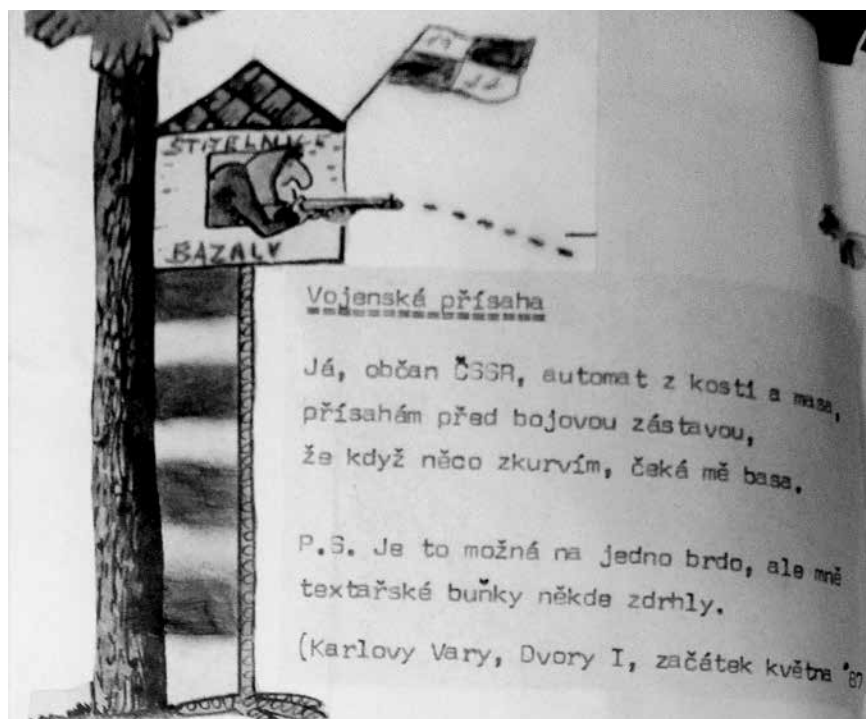 STŘELNICE
BAZALY
Vojenská přísaha
Já, občan ČSSR, automat z kostí a masa,
přísahám před bojovou zástavou,
že když něco zkurvím, čeká mě basa.
P.S. Je to možná na jedno brdo, ale mně
textařské buňky někde zdrhly.
(Karlovy Vary, Dvory I, začátek května '87